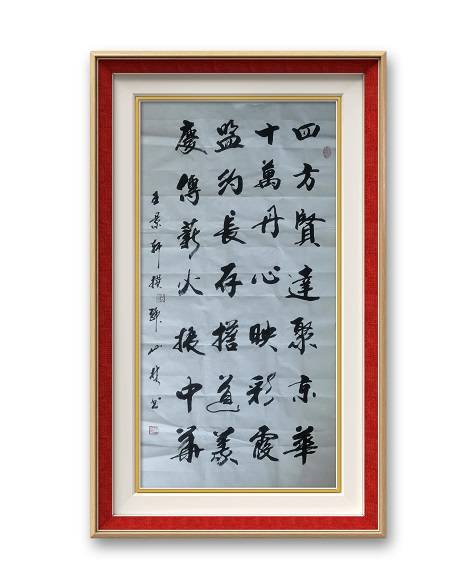 四方賢達聚京華
十萬丹心映彩霞
盟約長存擔道義
慶傳薪火振中華
王景軒撰 山樵書